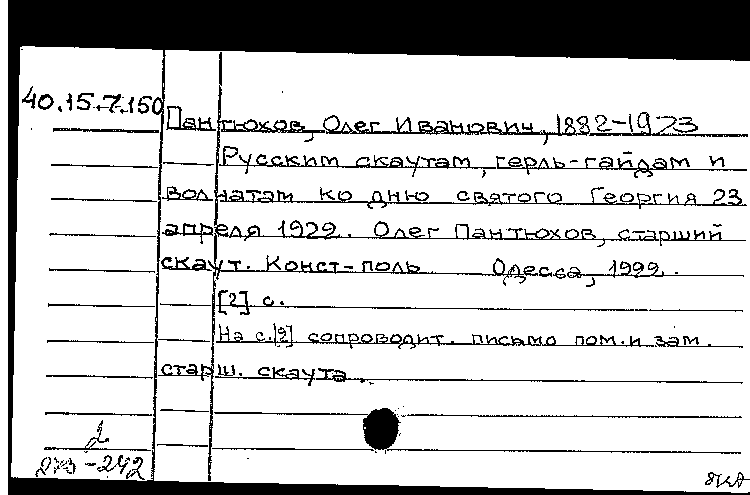 40.15.7.150
Пантюхов, Олег Иванович, 1882-1973
Русским скаутам, герль-гайдам и
волчатам ко дню святого Георгия 23
апреля 1929. Олег Пантюхов, старший
скаут. Конст-поль Одесса, 1999.
[2] с.
На с.[2] сопроводит. письмо пом. и зам.
старш. скаута.
-242